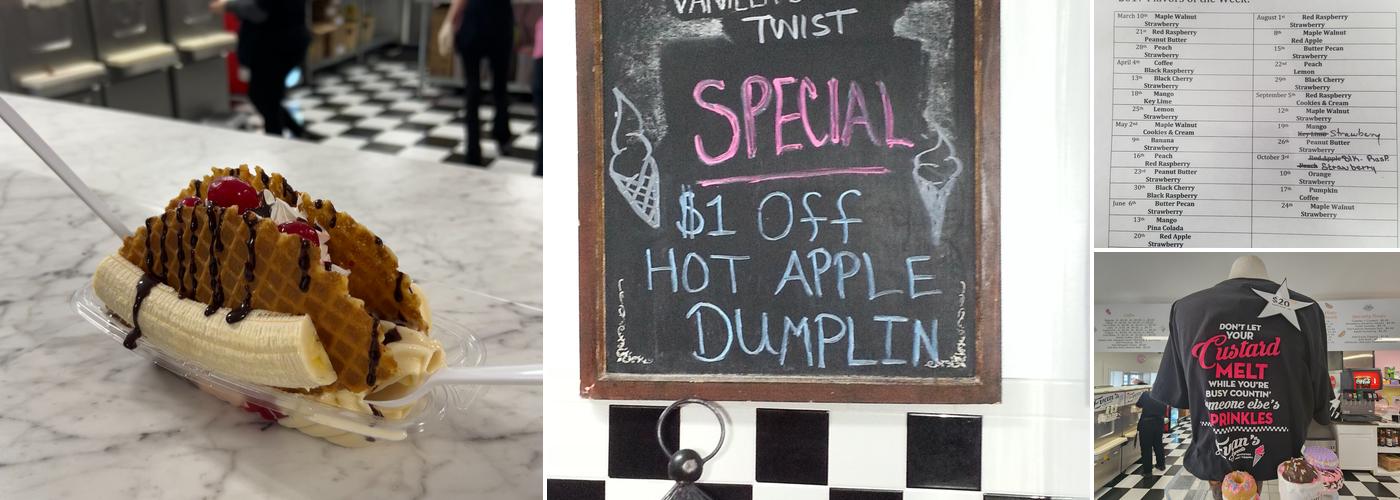 TWIST
SPECIAL
$1 Off
HOT APPLE
DUMPLIN
March 10th Maple Walnut
Strawberry
21st Red Raspberry
Peanut Butter
28th Peach
Strawberry
April 4th Coffee
Black Raspberry
13th Black Cherry
Strawberry
18th Mango
Key Lime
25th Lemon
Strawberry
May 2nd Maple Walnut
Cookies & Cream
9th Banana
Strawberry
16th Peach
Red Raspberry
23rd Peanut Butter
Strawberry
30th Black Cherry
Black Raspberry
June 6th Butter Pecan
Strawberry
13th Mango
Pina Colada
20th Red Apple
Strawberry
August 1st Red Raspberry
Strawberry
8th Maple Walnut
Red Apple
15th Butter Pecan
Strawberry
22nd Peach
Lemon
29th Black Cherry
Strawberry
September 5th Red Raspberry
Cookies & Cream
12th Maple Walnut
Strawberry
19th Mango
Key Lime Strawberry
26th Peanut Butter
Strawberry
October 3rd Red Apple Blk. Rasp
Peach Strawberry
10th Orange
Strawberry
17th Pumpkin
Coffee
24th Maple Walnut
Strawberry
$20
DON'T LET
YOUR
Custard
MELT
WHILE YOU'RE
BUSY COUNTIN'
omeone else's
PRINKLES
Evan's
Coca-Cola